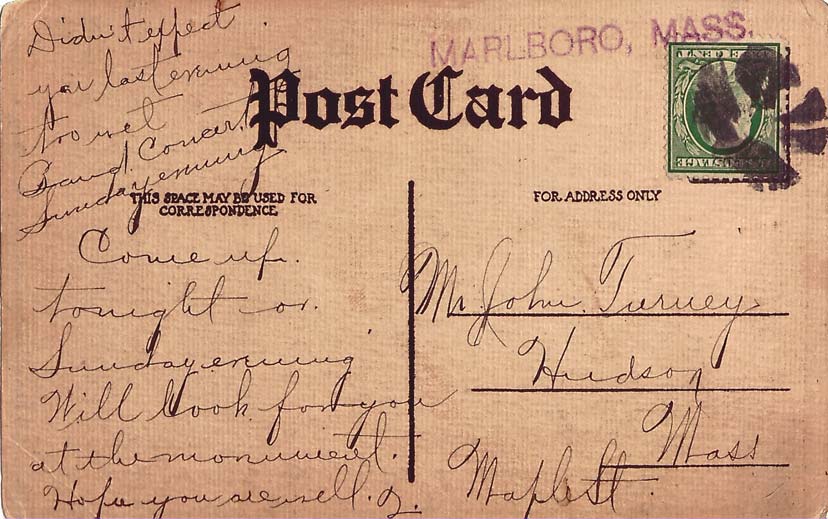 Didn't expect
you last evening
too wet
Band Concert
Sunday evening
MARLBORO, MASS.
Post Card
THIS SPACE MAY BE USED FOR
CORRESPONDENCE
Come up.
tonight or.
Sunday evening
Will look for you
at the monument.
Hope you are well.
FOR ADDRESS ONLY
Mr. John. Turney
Hudson
Mass
Maple St.